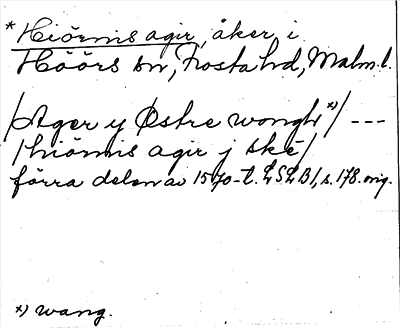 * Hiörnis agir, åker i
Höörs sn, Frosta hd, Malm.l.
/Ager y Østre wongh *)/ ---
/hiörnis agir j ské/
förra delen av 1570-t. LSLB1, s. 178. orig.
*) wang.